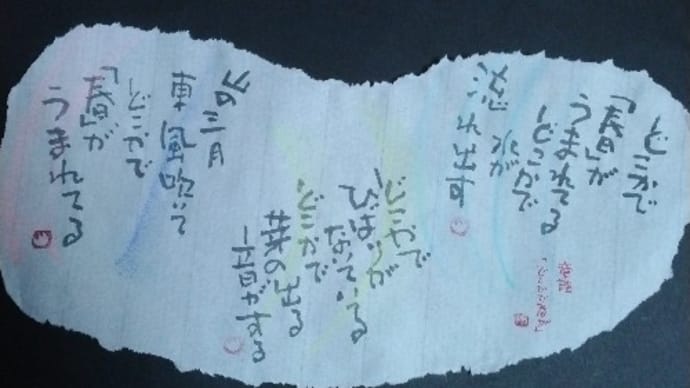 どこかで
「春」が
うまれてる
どこかで
水が
流れ出す
童謡
どこかで
「ひばりが
ないている
どこかで
芽の出る
音がする
山の三月
東風吹いて
どこかで
「春」が
うまれてる